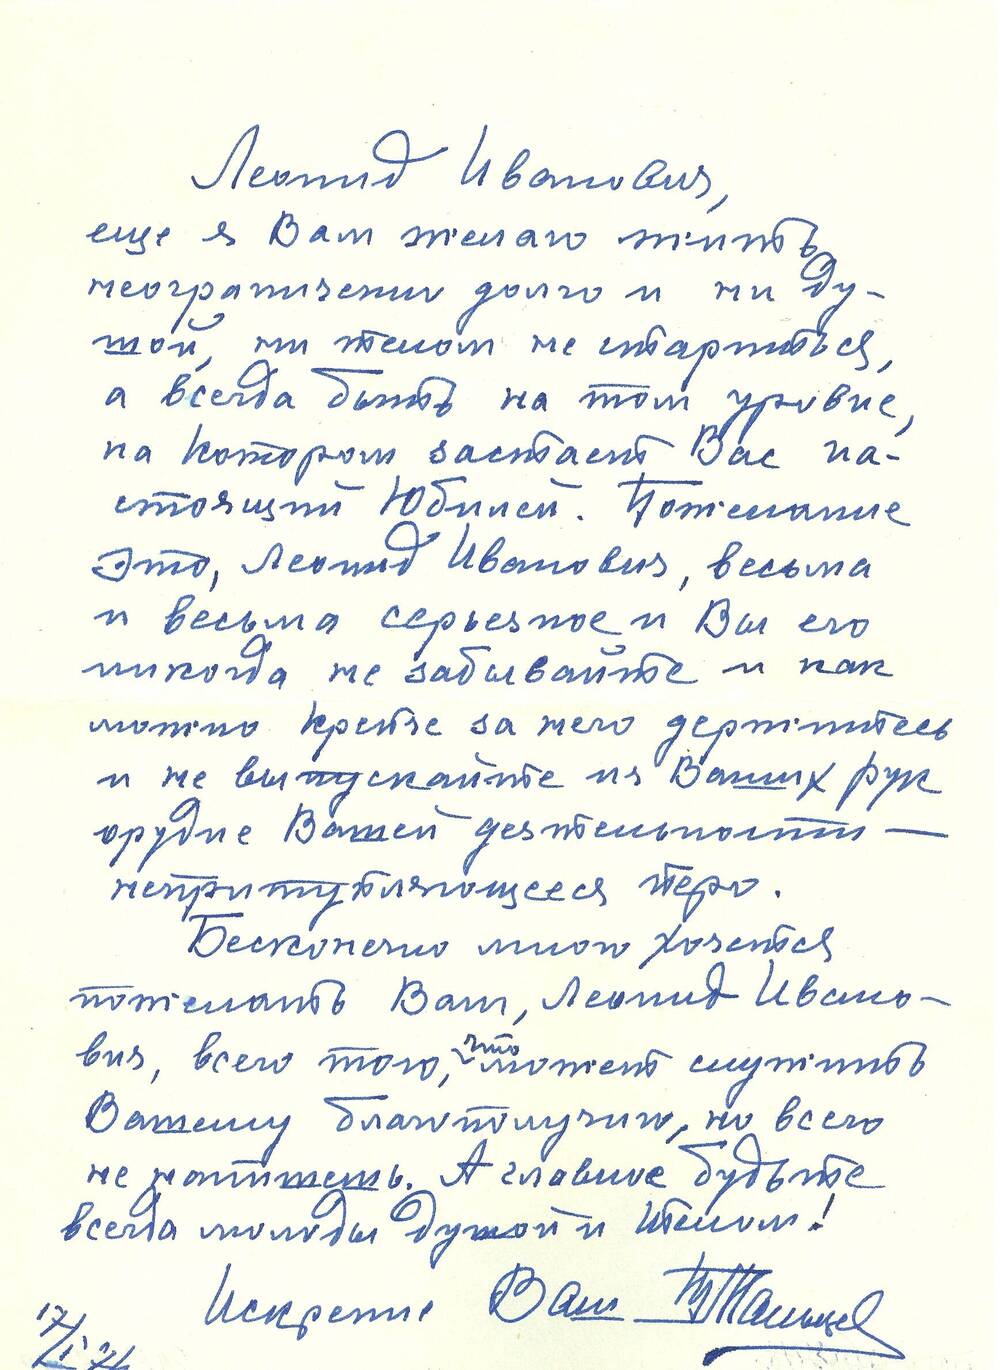 Леонид Иванович,
еще я Вам желаю жить
неограниченно долго и ни ду-
шой, ни телом не стариться,
а всегда быть на том уровне,
на котором застает Вас на-
стоящий Юбилей. Пожелание
это, Леонид Иванович, весьма
и весьма серьезное и Вы его
никогда не забывайте и как
можно крепче за него держитесь
и не выпускайте из Ваших рук
орудие Вашей деятельности —
непритупляющееся перо.
Бесконечно много хочется
пожелать Вам, Леонид Ивано-
вич, всего того, что может служить
Вашему благополучию, но всего
не напишешь. А главное будьте
всегда молоды душой и телом!
Искренне Ваш
17/I